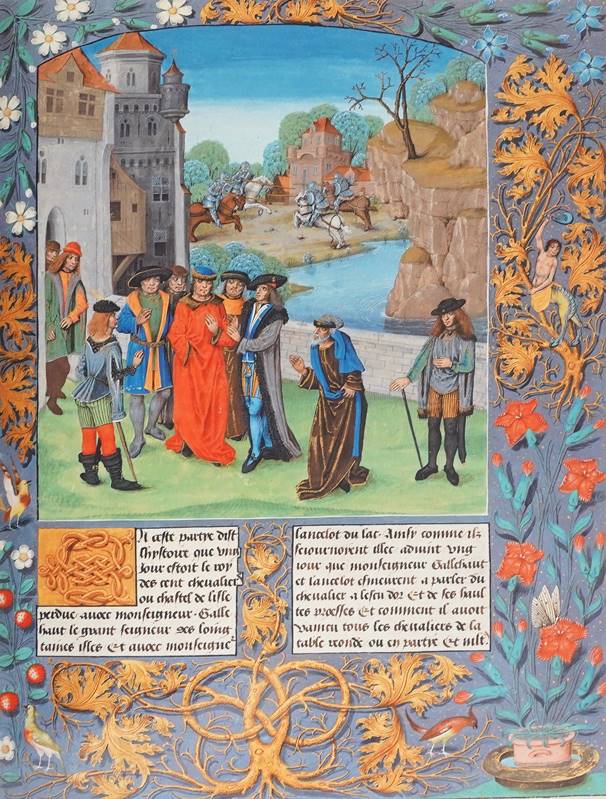 N ceste partye dist
lhystoire que vng
iour estoit le roy
des cent chevaliers
ou chastel de lisle
perdue avoec monseigneur. Galle
hault le grant seigneur des loing
taines isles Et avoec monseigne
lancelot du lac. Ainsy comme ilz
seiournoient illec aduint vng
iour que monseigneur Gallehaut
et lancelot esmeurent a parler du
chevalier a lescu dor Et de ses haul
tes proesses Et comment il avoit
vaincu tous les chevaliers de la
table ronde ou en partye Et mlt.